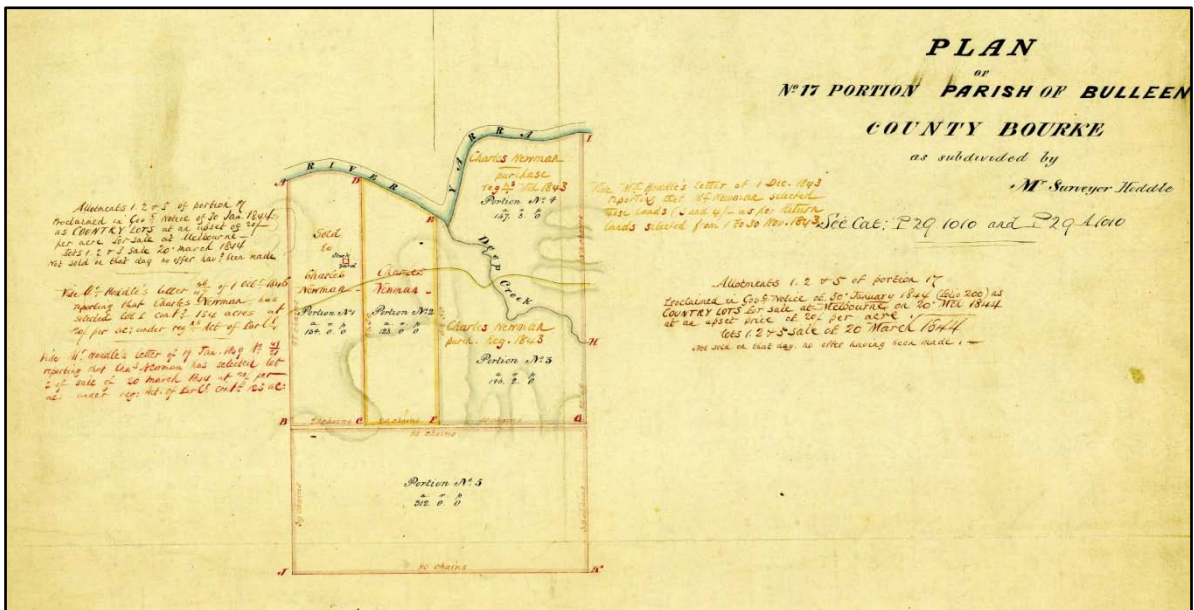 PLAN
OF
No. 17 PORTION PARISH OF BULLEEN
COUNTY BOURKE
as subdivided by
Mr Surveyor Hoddle
See Cat: P29.1010 and P29A1010
Allotments 1. 2 & 5 of portion 17
Proclaimed in Govt Notice of 30 January 1844 (folio 200) as
COUNTRY LOTS for sale at Melbourne on 20 Mch 1844
at an upset price of 20/- per acre
lots 1. 2 & 5 Sale of 20 March 1844
Not sold on that day. no offer having been made.
Vide Mr Hoddle's letter of 1 Dec. 1843
reporting that Mr Newman selected
these lands (3 and 4) as per Return
lands selected from 1 to 30 Nov. 1843
Allotments 1. 2 & 5 of portion 17
Proclaimed in Govt Notice of 30 Jan. 1844
as COUNTRY LOTS at an upset of 20/-
per acre for sale at Melbourne
Lots 1. 2 & 5 Sale 20 March 1844
Not sold on that day no offer havg been made
Vide Mr Hoddle's letter of 1 Octr
reporting that Charles Newman has
selected lot 1 contg 154 acres at
20/- per ac: under Act of Parlt
Vide Mr Hoddle's letter of 17 Jan. 1849 No
reporting that Chas Newman has selected lot
2 of sale of 20 March 1844 at per
ac: under Act. of Parlt contg 123 ac:
RIVER YARRA
A
D
E
I
Charles Newman
purchase
1843
Portion No. 4
a r p
157. 3 0
Deep Creek
Sold
to
Charles
Newman
Portion No. 1
a r p
154. 0 0
Charles
Newman
Portion No. 2
a r p
123. 0 0
Charles Newman
purch. 1843
H
Portion No. 3
a r p
196. 2. 0
B
20 chains
C
20 chains
F
40 chains
G
80 chains
Portion No. 5
a r p
312. 0 0
39 chains
39 chains
J
80 chains
K